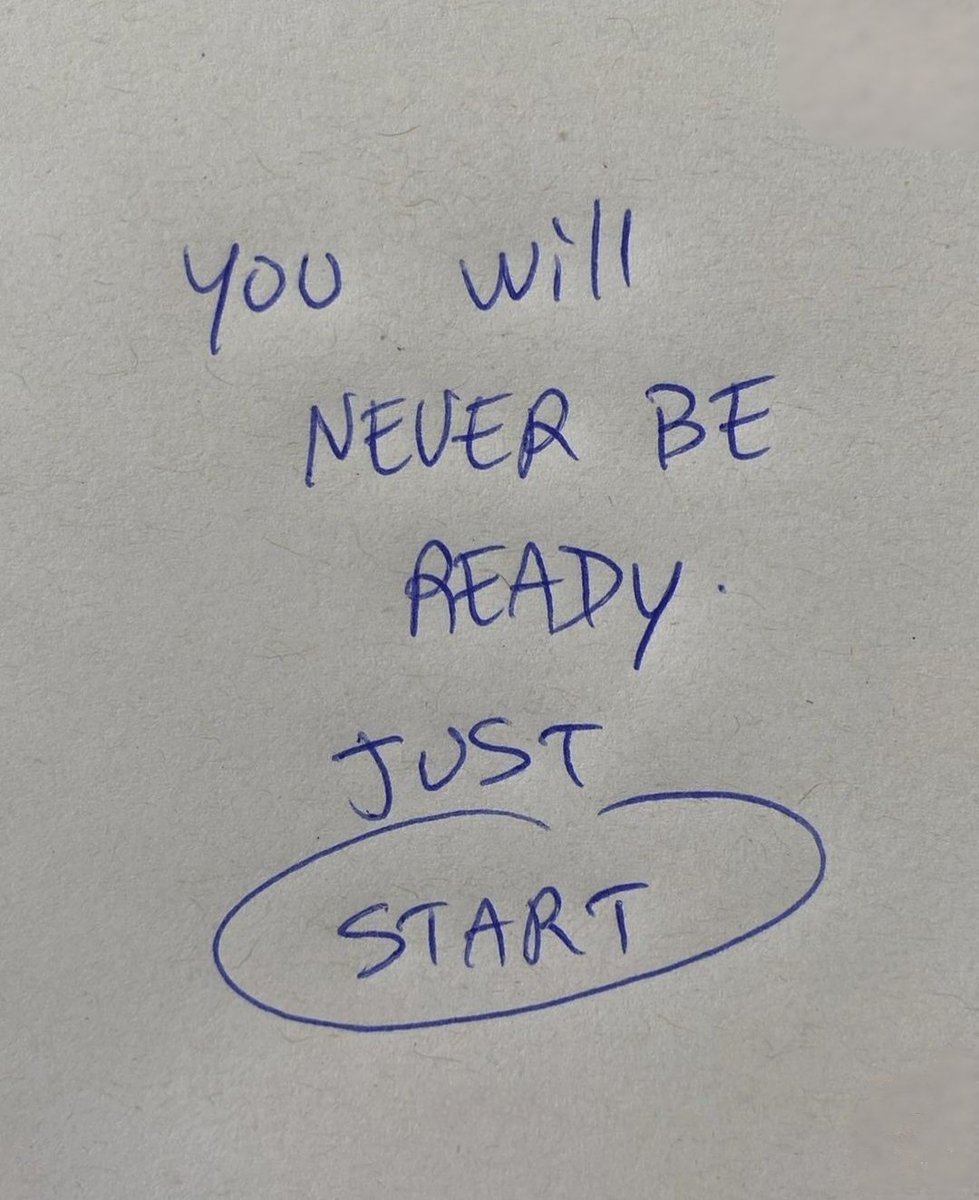 you will
NEVER BE
READY.
JUST
START